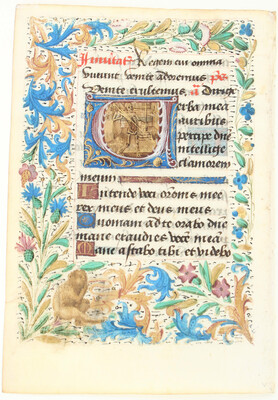 Invitat Regem cui omnia
vivunt venite adoremus ps
Venite exultemus a Dirige
Verba mea
auribus
percipe dne
intellige
clamorem
meum
Intende voci oronis mee
rex meus et deus meus
Quoniam ad te orabo dne
mane exaudies vocē meā
Mane astabo tibi et videbo